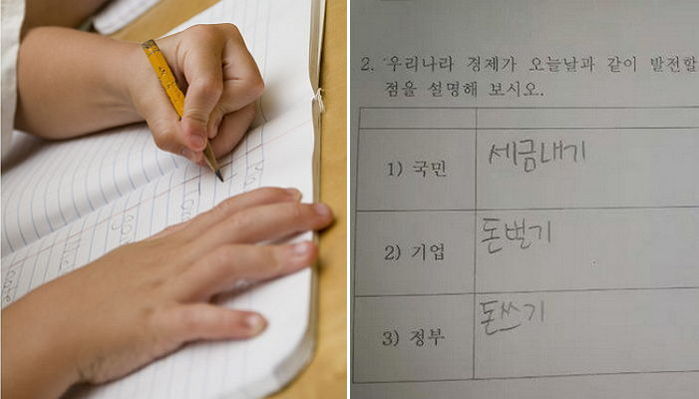 2. 우리나라 경제가 오늘날과 같이 발전할
점을 설명해 보시오.
1) 국민 세금내기
2) 기업 돈벌기
3) 정부 돈쓰기